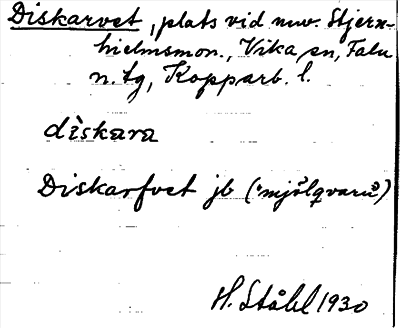 Diskarvet, plats vid nuv. Stjern-
hielmsmon., Vika sn, Falu
n. tg, Kopparb. l.
diskara
Diskarfvet jb ("mjölqvarn")
H. Ståhl 1930